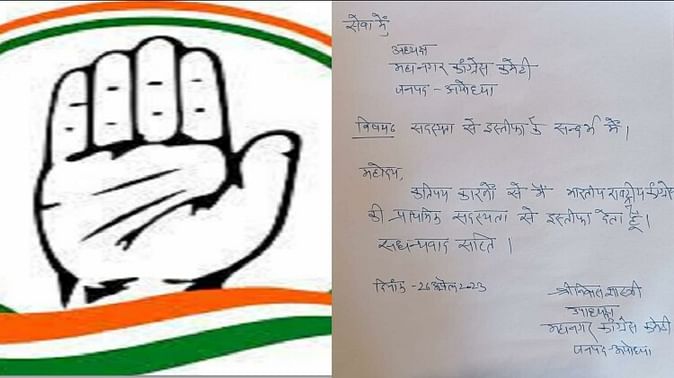 सेवा में,
अध्यक्ष
महानगर कांग्रेस कमेटी
जनपद - अयोध्या
विषय: सदस्यता से इस्तीफा के सन्दर्भ में।
महोदय,
कतिपय कारणों से मैं भारतीय राष्ट्रीय कांग्रेस
की प्राथमिक सदस्यता से इस्तीफा देता हूँ।
सधन्यवाद सहित।
दिनांक - 26 अप्रैल 2023
शास्त्री
उपाध्यक्ष
महानगर कांग्रेस कमेटी
जनपद - अयोध्या